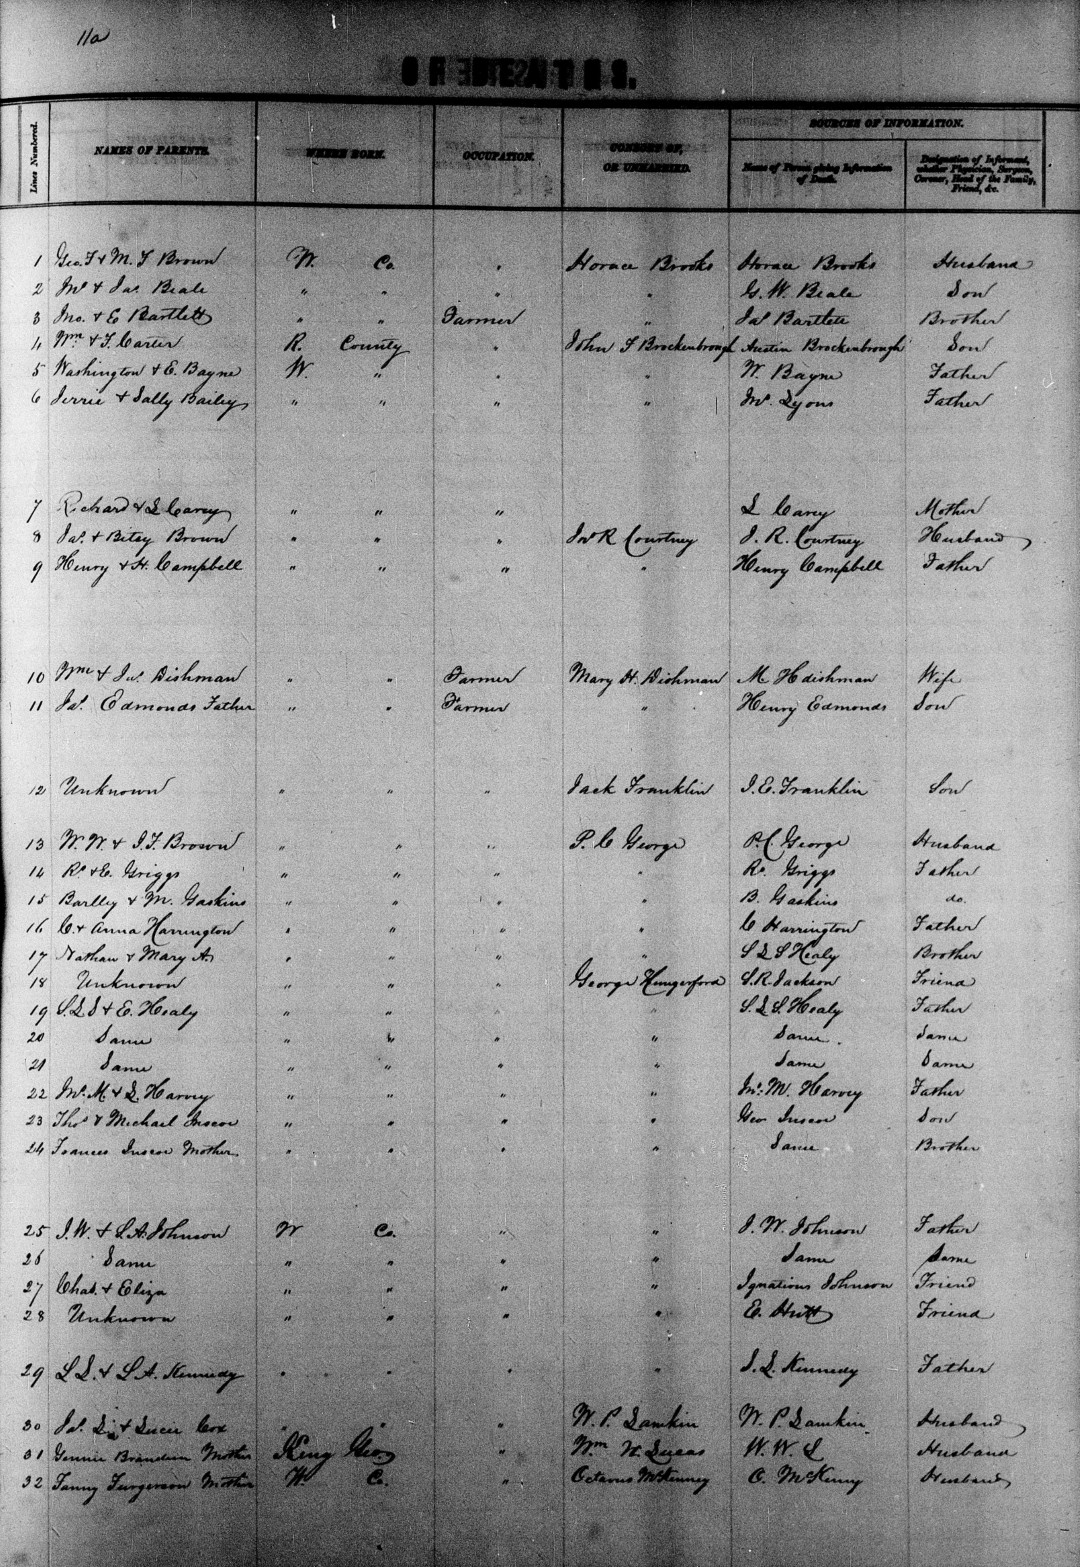 11a
Lines Numbered.
NAMES OF PARENTS.
WHERE BORN.
OCCUPATION.
CONSORT OF,
OR UNMARRIED.
SOURCES OF INFORMATION.
Name of Person giving Information
of Death.
Designation of Informant,
whether Physician, Surgeon,
Coroner, Head of the Family,
Friend, &c.
1 Geo. T & M. F Brown W. Co. " Horace Brooks Horace Brooks Husband
2 Jno & Jas Beale " " " " G. W. Beale Son
3 Jno. & E Bartlett " " Farmer " Jas Bartlett Brother
4 Wm & F. Carter R. County " John F Brockenbrough Austin Brockenbrough Son
5 Washington & E. Bayne W. " " " W. Bayne Father
6 Jerrie & Sally Bailey " " " " Jno. Lyons Father
7 Richard & L Carey " " " L Carey Mother
8 Jas. & Betsy Brown " " " Jno R Courtney J. R. Courtney Husband
9 Henry & H. Campbell " " " " Henry Campbell Father
10 Wm & Jas. Dishman " " Farmer Mary H. Dishman M Hdishman Wife
11 Jas. Edmonds Father " " Farmer " Henry Edmonds Son
12 Unknown " " " Jack Franklin J. E. Franklin Son
13 W. W. & J. F. Brown " " " P. C George P. C. George Husband
14 R. & E. Griggs " " " " R. Griggs Father
15 Bartley & M. Gaskins " " " " B. Gaskins do.
16 C. & Anna Harrington " " " " C Harrington Father
17 Nathan & Mary A. " " " " S L S Healy Brother
18 Unknown " " " George Hungerford S. R. Jackson Friend
19 S. L S & E. Healy " " " " S. L S. Healy Father
20 Same " " " " Same. Same
21 Same " " " " Same Same
22 Jno. M. & L Harvey " " " " Jno. M. Harvey Father
23 Thos & Michael Inscoe " " " " Geo Inscoe Son
24 Frances Inscoe Mother " " " " Same Brother
25 J. W. & L. A. Johnson W Co. " " J. W. Johnson Father
26 Same " " " " Same Same
27 Chas. & Eliza " " " " Ignatious Johnson Friend
28 Unknown " " " " E. Hutt Friend
29 L. & L. A. Kennedy " " " " J. L. Kennedy Father
30 Jas. L. & Lucie Cox " " " W. P. Lamkin W. P. Lamkin Husband
31 Mother King Geo. " Wm W. Lucas W. W. L Husband
32 Fanny Furgerson Mother W. C. " Octavus McKenney O. McKenny Husband